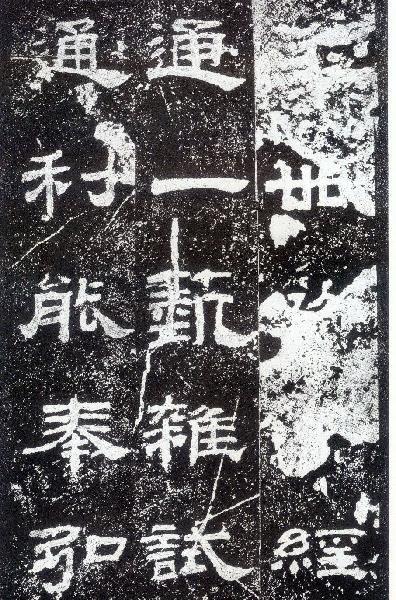 卌經
通一埶雜試
通利能奉弘